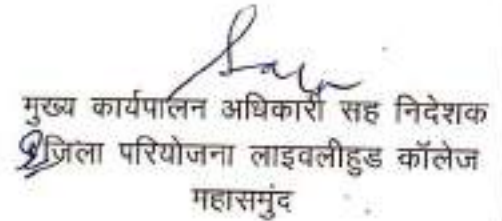 मुख्य कार्यपालन अधिकारी सह निदेशक
जिला परियोजना लाइवलीहुड कॉलेज
महासमुंद